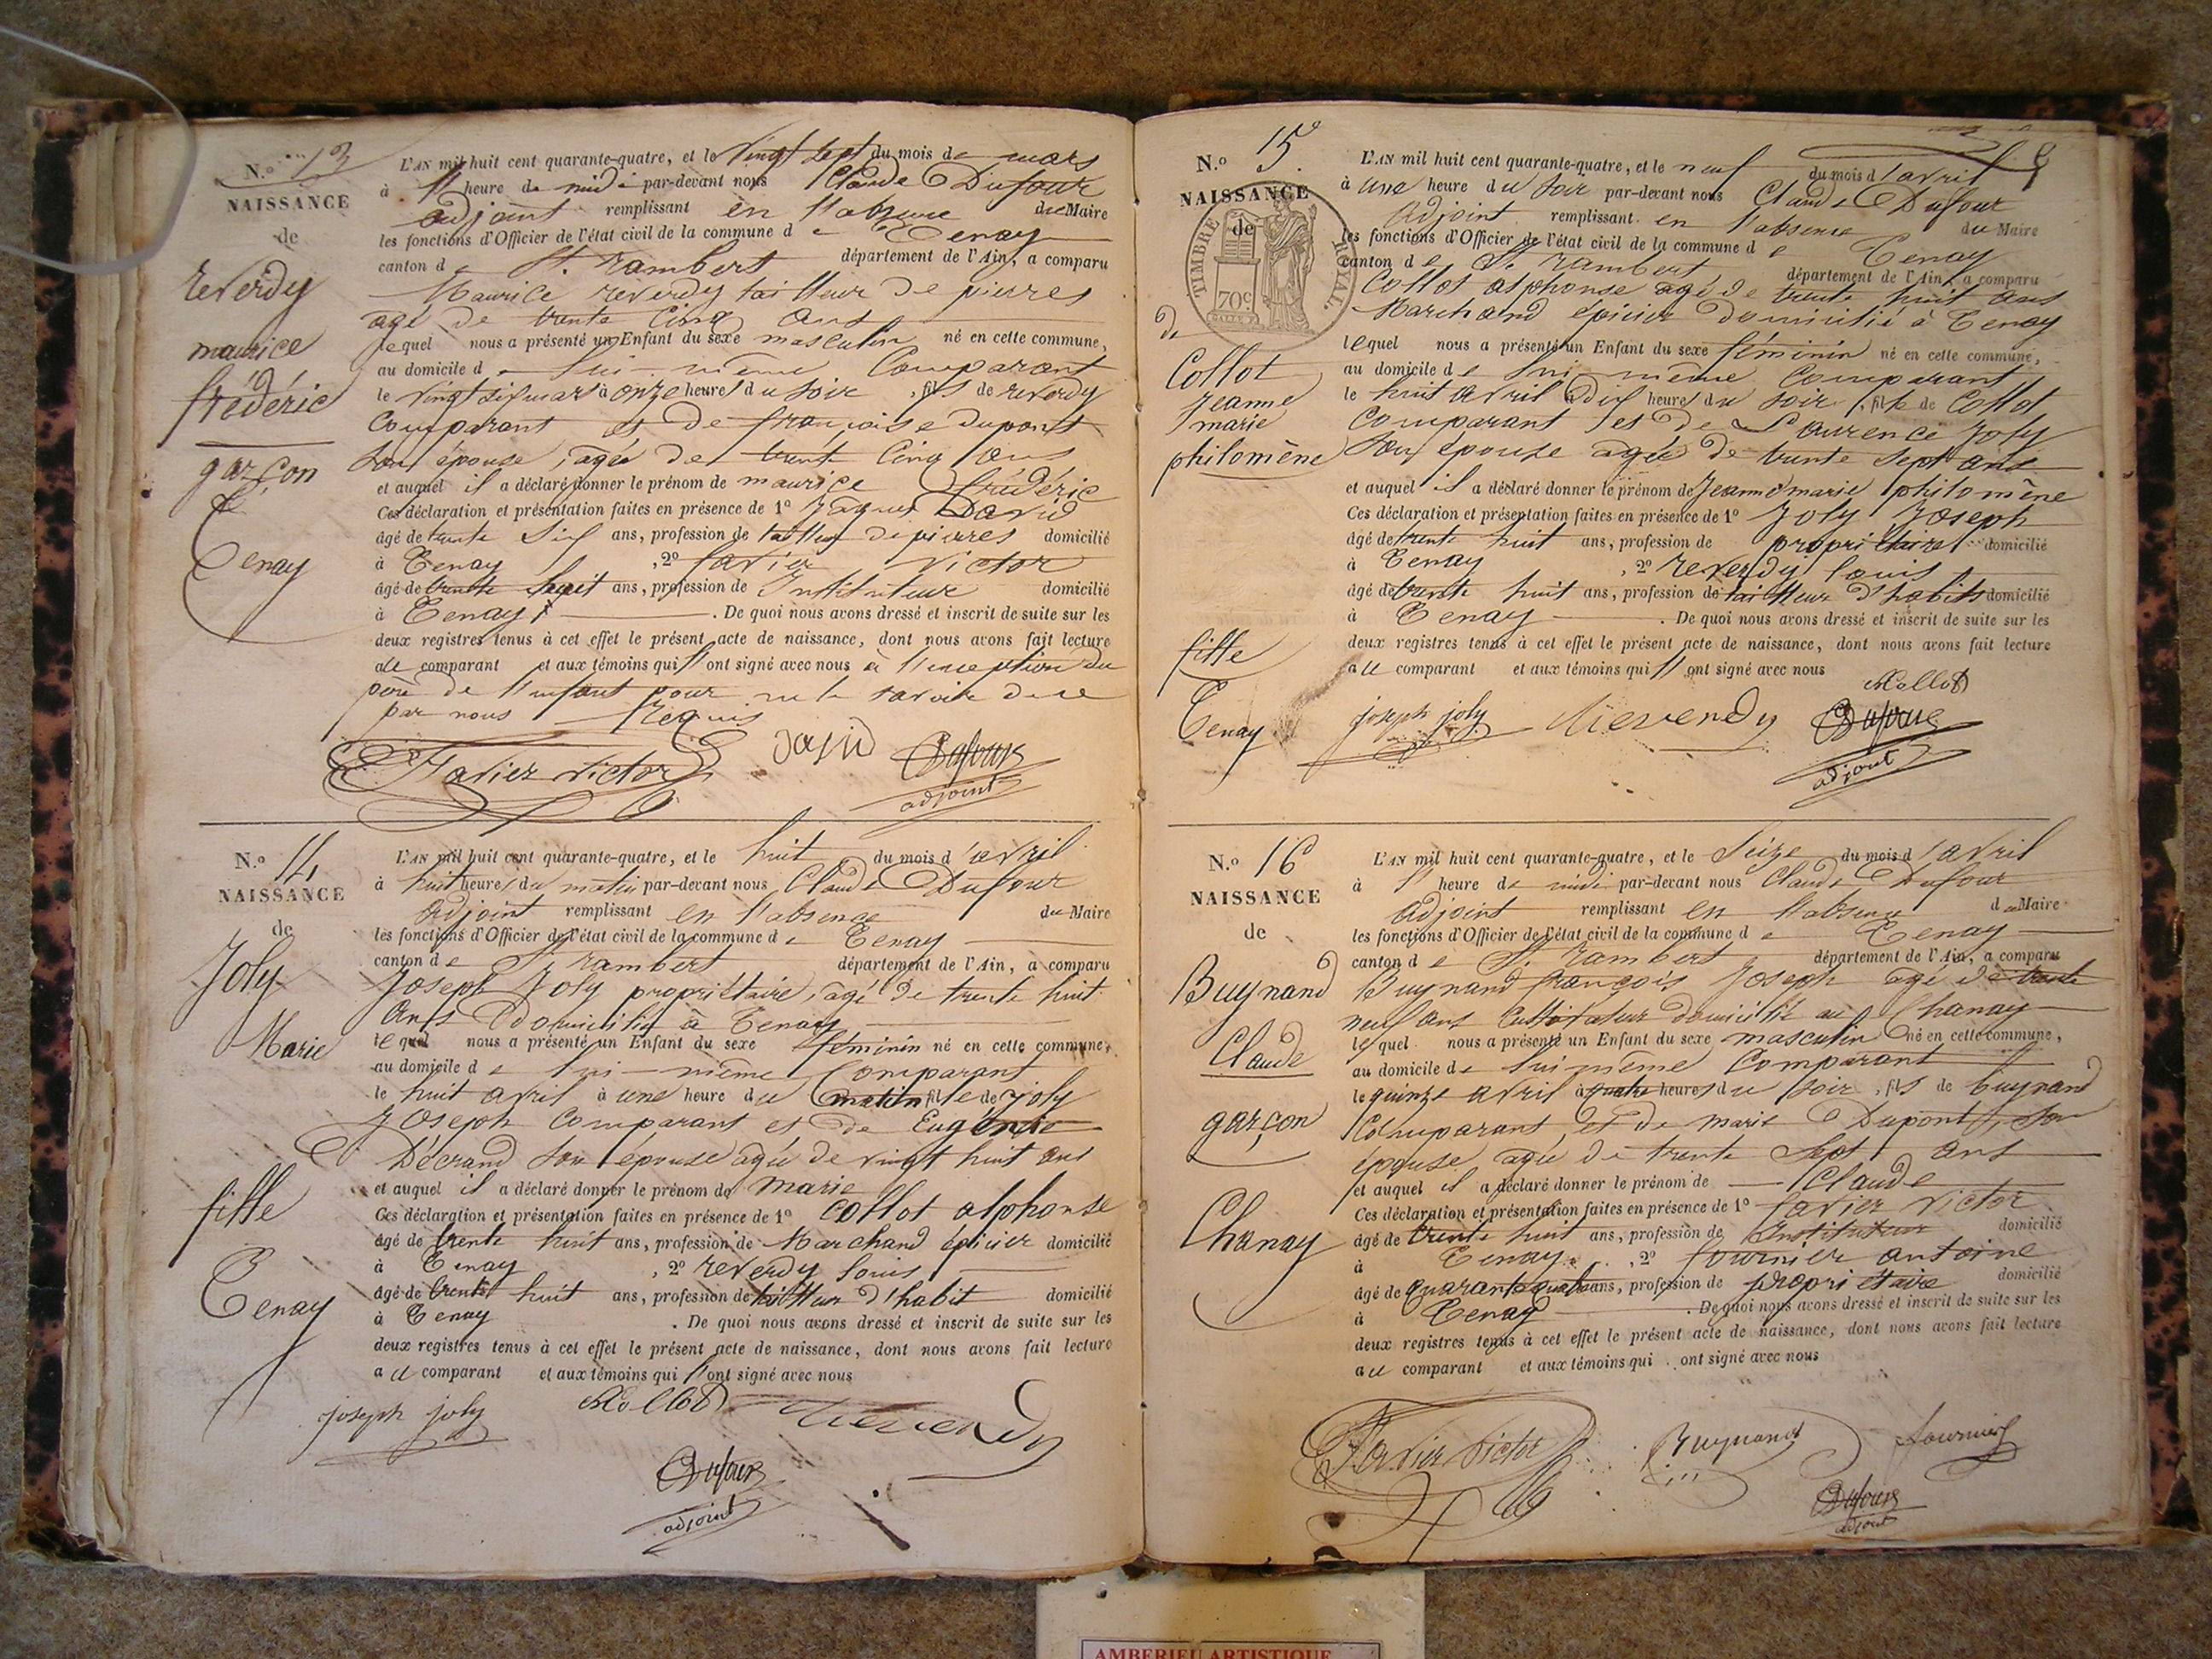 N.º 13
NAISSANCE
de
reverdy
maurice
frédéric
garçon
Tenay
L'AN mil huit cent quarante-quatre, et le vingt sept du mois de mars
à l' heure de midi par-devant nous Claude Dufour
adjoint remplissant en l'absence du Maire
les fonctions d'Officier de l'état civil de la commune de Tenay
canton de St. rambert département de l'Ain, a comparu
Maurice reverdy tailleur de pierres
agé de trente Cinq ans
lequel nous a présenté un Enfant du sexe masculin né en cette commune,
au domicile de lui-même Comparant
le vingt six mars à onze heures du soir, fils de reverdy
Comparant et de françoise dupont
son épouse, agée de trente Cinq ans
et auquel il a déclaré donner le prénom de maurice frédéric
Ces déclaration et présentation faites en présence de 1º David
âgé de trente six ans, profession de tailleur de pierres domicilié
à Tenay, 2º favier Victor
âgé de trente huit ans, profession de Instituteur domicilié
à Tenay. De quoi nous avons dressé et inscrit de suite sur les
deux registres tenus à cet effet le présent acte de naissance, dont nous avons fait lecture
au comparant et aux témoins qui l'ont signé avec nous à l'exception du
père de l'enfant pour ne le savoir de ce
par nous requis
Favier victor David Dufour
adjoint
N.º 14
NAISSANCE
de
Joly
Marie
fille
Tenay
L'AN mil huit cent quarante-quatre, et le huit du mois d'avril
à huit heures du matin par-devant nous Claude Dufour
Adjoint remplissant en l'absence du Maire
les fonctions d'Officier de l'état civil de la commune de Tenay
canton de St rambert département de l'Ain, a comparu
Joseph Joly propriétaire, agé de trente huit
ans domicilié à Tenay
lequel nous a présenté un Enfant du sexe féminin né en cette commune,
au domicile de lui-même Comparant
le huit avril à une heure du matin fille de joly
Joseph Comparant et de Eugénie
Décrand son épouse agée de vingt huit ans
et auquel il a déclaré donner le prénom de marie
Ces déclaration et présentation faites en présence de 1º Collot alphonse
âgé de trente huit ans, profession de Marchand épicier domicilié
à Tenay, 2º reverdy louis
âgé de trente huit ans, profession de tailleur d'habit domicilié
à Tenay. De quoi nous avons dressé et inscrit de suite sur les
deux registres tenus à cet effet le présent acte de naissance, dont nous avons fait lecture
au comparant et aux témoins qui l'ont signé avec nous
joseph joly Collot reverdy
Dufour
adjoint
N.º 15
NAISSANCE
de
TIMBRE ROYAL.
70c
de
Collot
Jeanne
marie
philomène
fille
Tenay
L'AN mil huit cent quarante-quatre, et le neuf du mois d'avril
à une heure du soir par-devant nous Claude Dufour
Adjoint remplissant en l'absence du Maire
les fonctions d'Officier de l'état civil de la commune de Tenay
canton de St rambert département de l'Ain, a comparu
Collot alphonse agé de trente huit ans
Marchand épicier domicilié à Tenay
lequel nous a présenté un Enfant du sexe féminin né en cette commune,
au domicile de lui-même Comparant
le huit avril à dix heures du soir, fille de Collot
Comparant et de Laurence Joly
son épouse agée de trente sept ans
et auquel il a déclaré donner le prénom de Jeanne marie philomène
Ces déclaration et présentation faites en présence de 1º Joly Joseph
âgé de trente huit ans, profession de propriétaire domicilié
à Tenay, 2º reverdy louis
âgé de trente huit ans, profession de tailleur d'habits domicilié
à Tenay. De quoi nous avons dressé et inscrit de suite sur les
deux registres tenus à cet effet le présent acte de naissance, dont nous avons fait lecture
au comparant et aux témoins qui l'ont signé avec nous
Collot
joseph joly reverdy Dufour
adjoint
N.º 16
NAISSANCE
de
Buynand
Claude
garçon
Chanay
L'AN mil huit cent quarante-quatre, et le Seize du mois d'avril
à l' heure de midi par-devant nous Claude Dufour
Adjoint remplissant en l'absence du Maire
les fonctions d'Officier de l'état civil de la commune de Tenay
canton de St. rambert département de l'Ain, a comparu
Buynand françois Joseph agé de trente
neuf ans Cultivateur domicilié au Chanay
lequel nous a présenté un Enfant du sexe masculin né en cette commune,
au domicile de lui-même Comparant
le quinze avril à quatre heures du soir, fils de buynand
Comparant, et de marie Dupont, son
épouse agée de trente sept ans
et auquel il a déclaré donner le prénom de Claude
Ces déclaration et présentation faites en présence de 1º favier victor
âgé de trente huit ans, profession de Instituteur domicilié
à Tenay, 2º fournier antoine
âgé de quarante quatre ans, profession de propriétaire domicilié
à Tenay. De quoi nous avons dressé et inscrit de suite sur les
deux registres tenus à cet effet le présent acte de naissance, dont nous avons fait lecture
au comparant et aux témoins qui ont signé avec nous
Favier victor Buynand fournier
Dufour
adjoint
AMBERIEU ARTISTIQUE